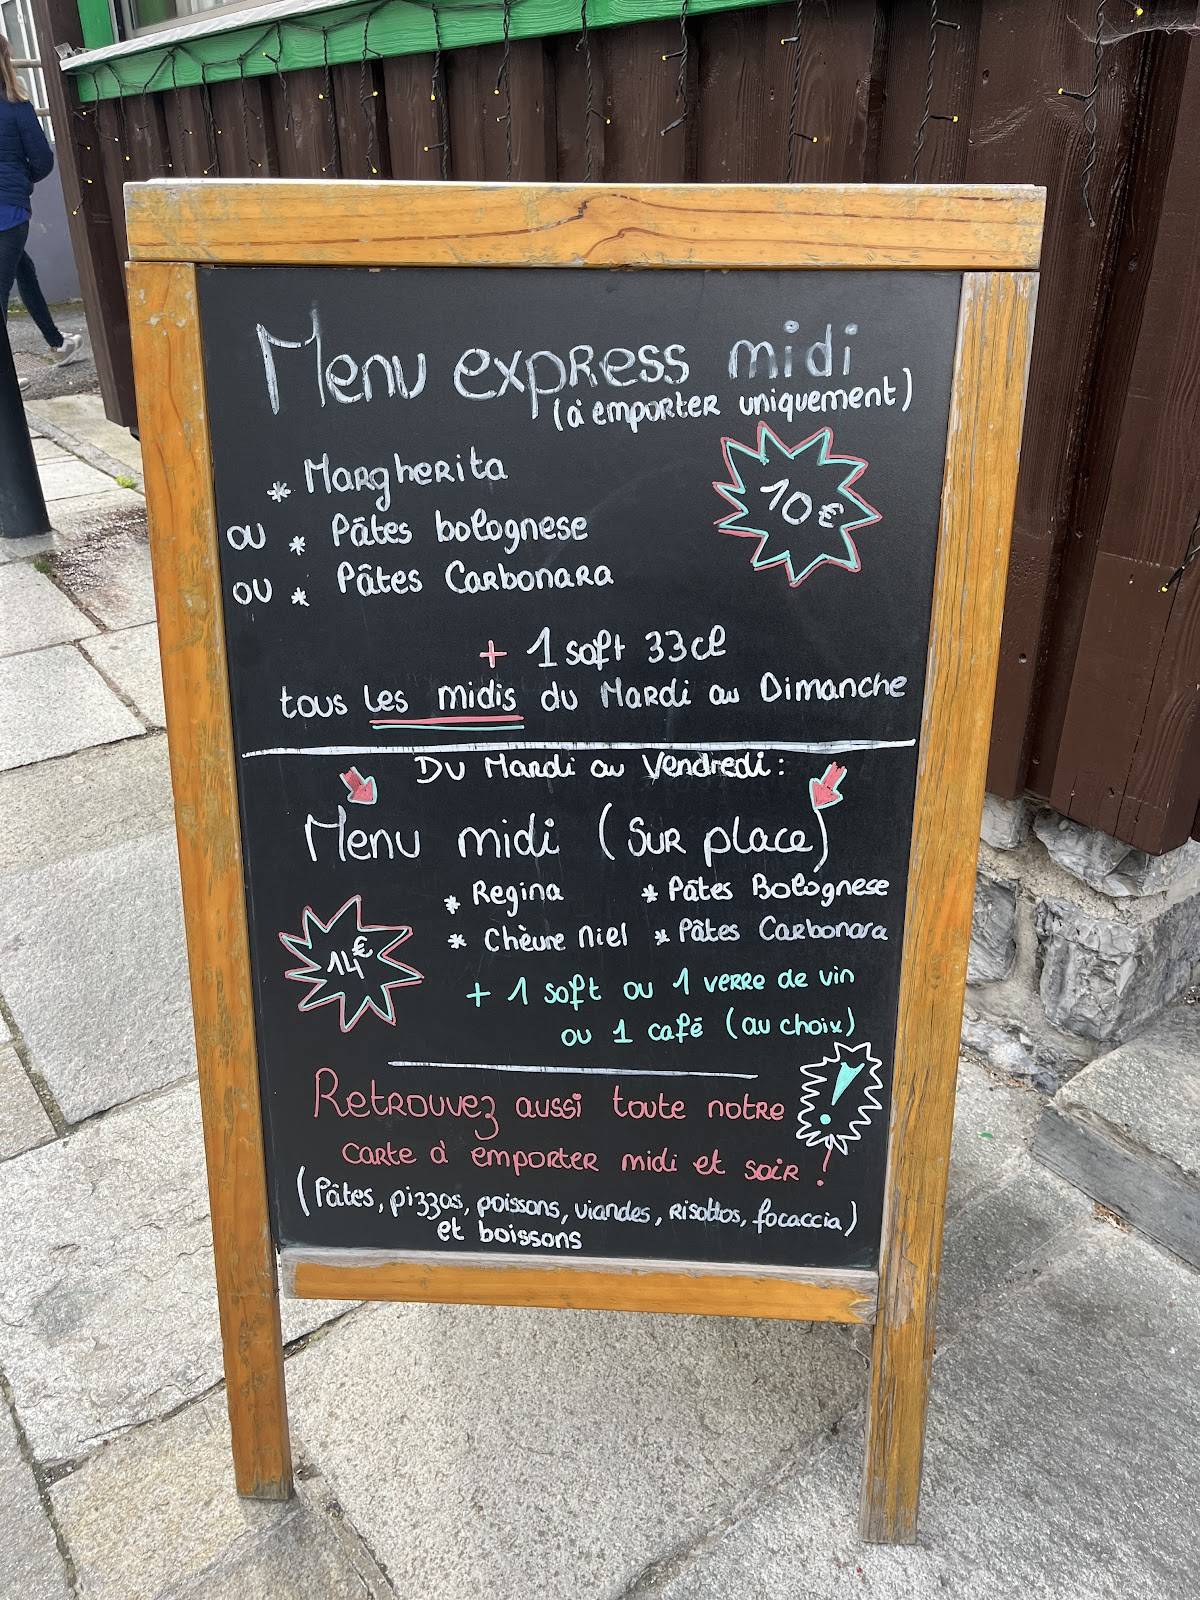 Menu express midi
(à emporter uniquement)
* Margherita
10€
ou * Pâtes bolognese
ou * Pâtes Carbonara
+ 1 soft 33cl
tous les midis du Mardi au Dimanche
Du Mardi au Vendredi :
Menu midi (Sur place)
* Regina * Pâtes Bolognese
* Chèvre Miel * Pâtes Carbonara
14€
+ 1 soft ou 1 verre de vin
ou 1 café (au choix)
Retrouvez aussi toute notre
carte à emporter midi et soir !
!
(Pâtes, pizzas, poissons, viandes, risottos, focaccia)
et boissons